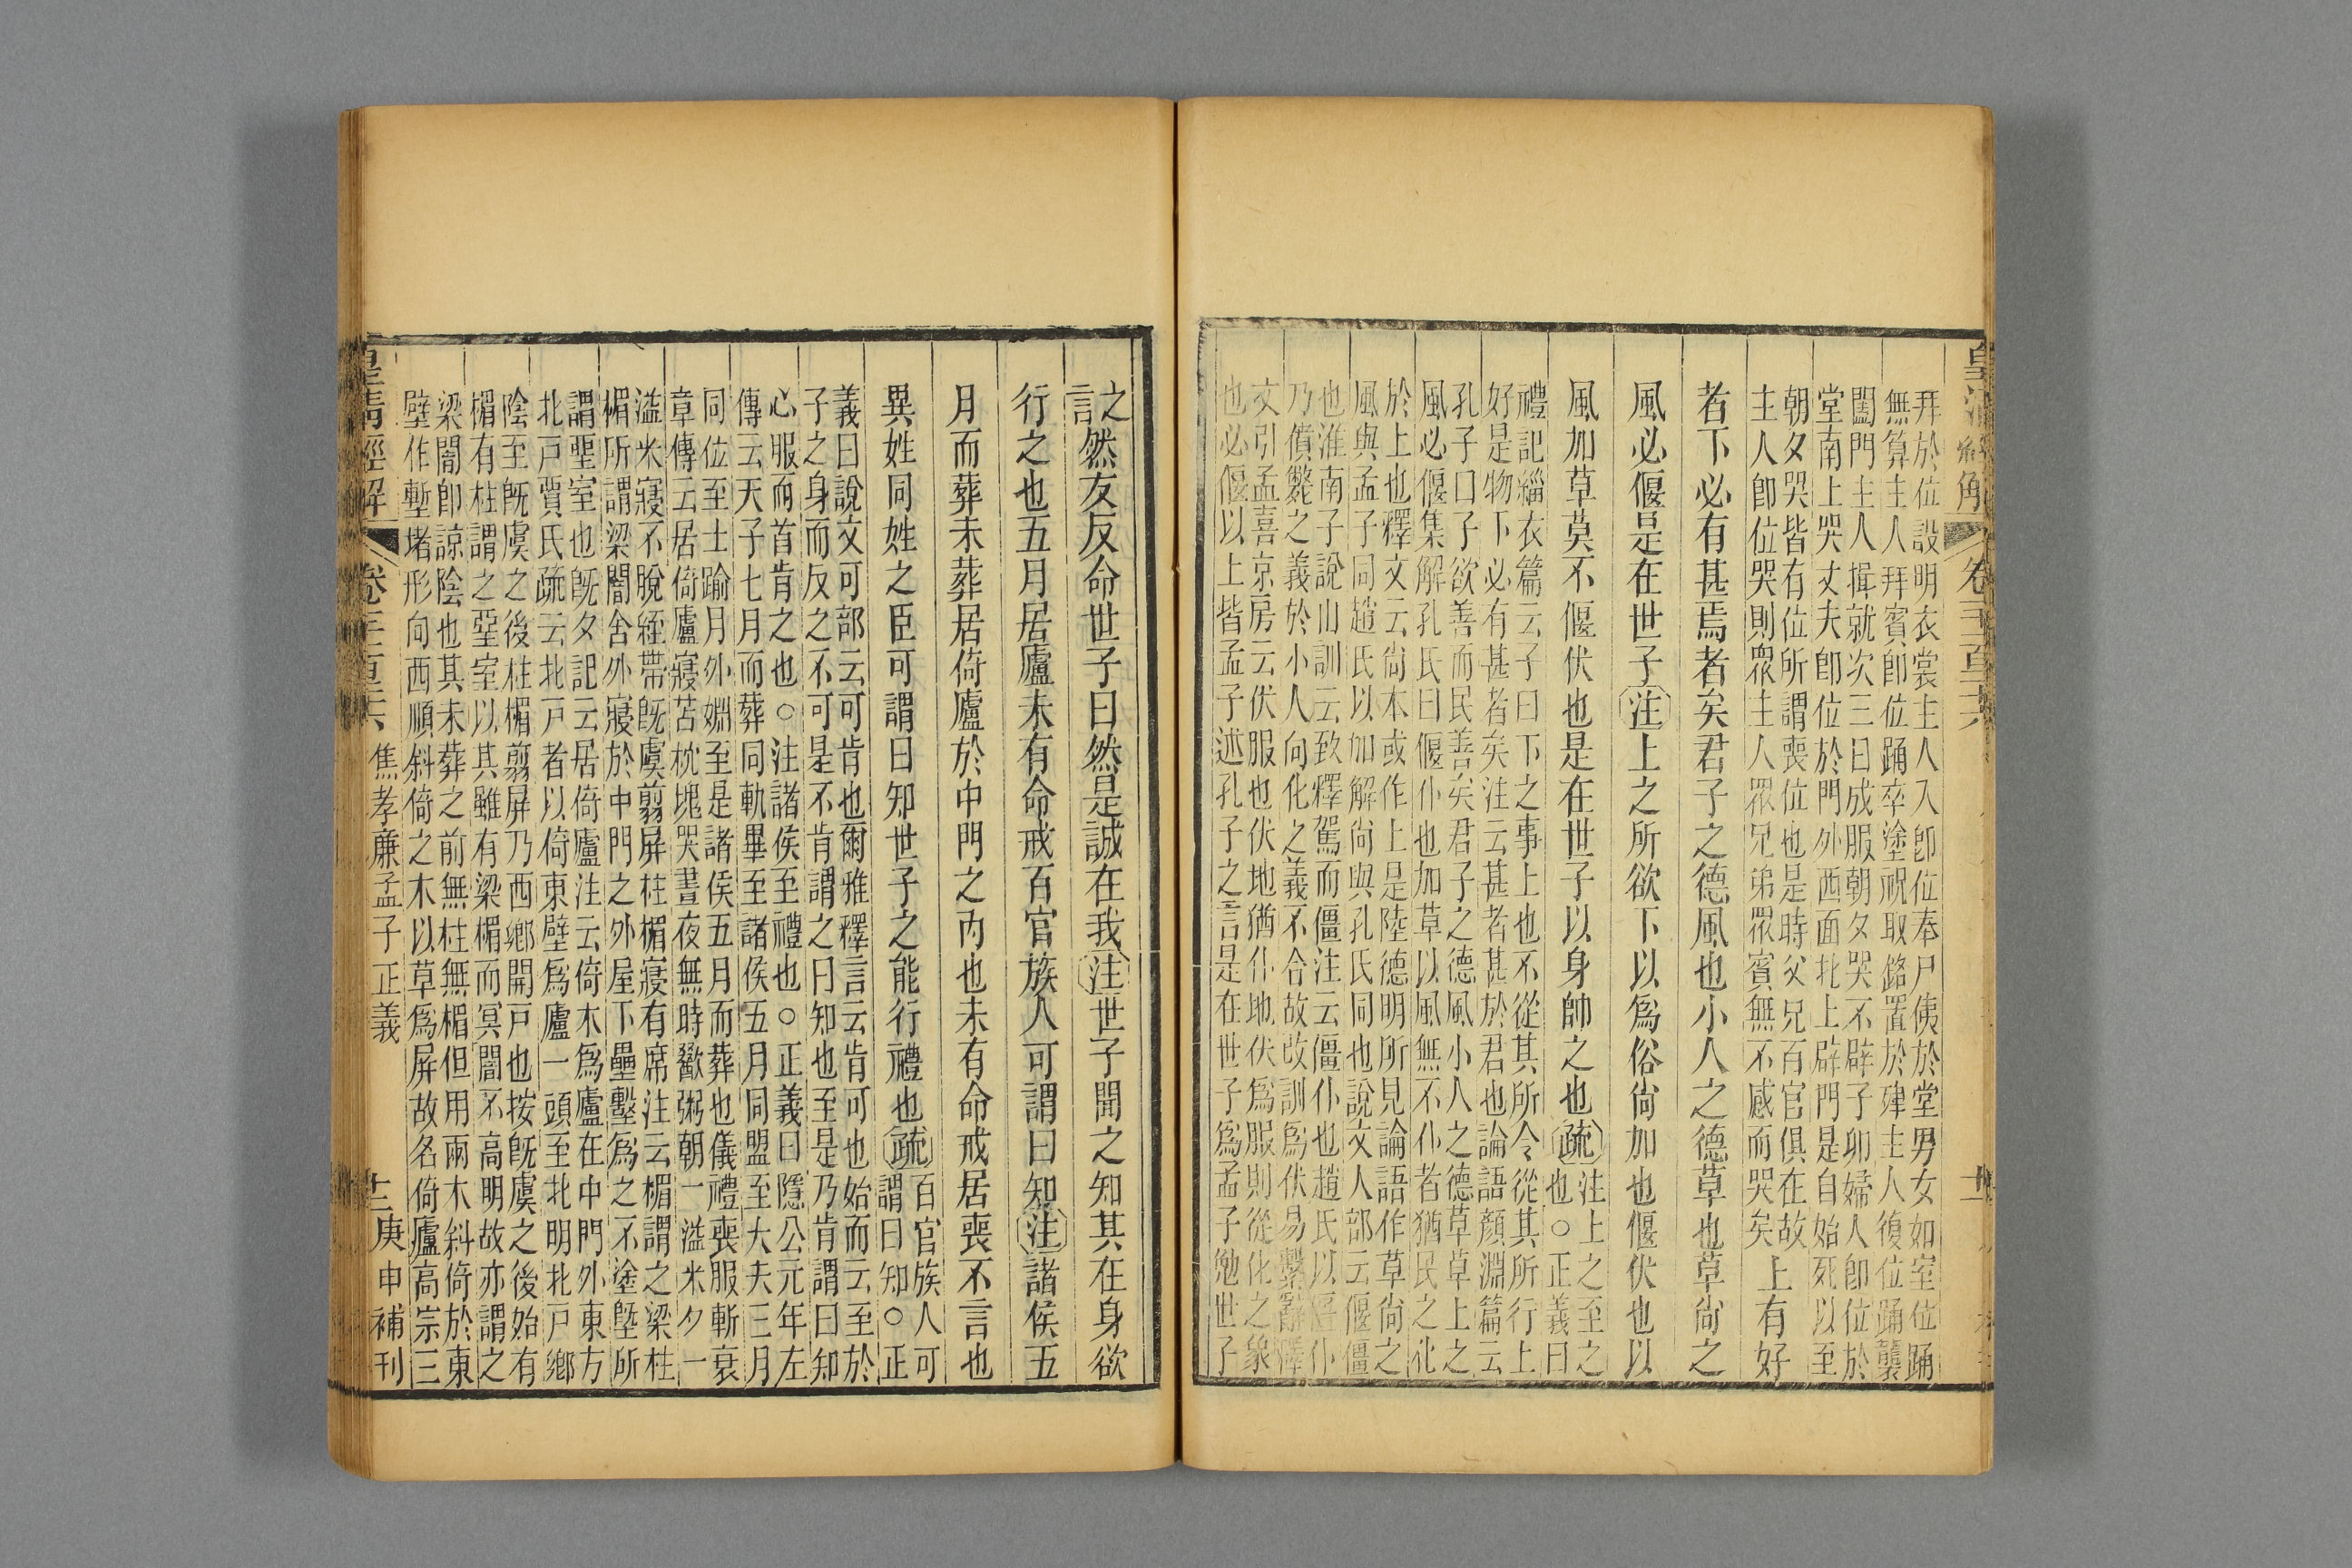 拜於位設明衣裳主人入卽位奉尸侇於堂男女如室位踊
無算主人拜賓卽位踊卒塗祝取銘置於殔主人復位踊襲
闔門主人揖就次三日成服朝夕哭不辟子卯婦人卽位於
堂南上哭丈夫卽位於門外西面北上辟門是自始死以至
朝夕哭皆有位所謂喪位也是時父兄百官俱在故
主人卽位哭則眾主人眾兄弟眾賓無不慼而哭矣
上有好
者下必有甚焉者矣君子之德風也小人之德草也草尙之
風必偃是在世子注上之所欲下以爲俗尙加也偃伏也以
風加草莫不偃伏也是在世子以身帥之也疏
注上之至之
也○正義曰
禮記緇衣篇云子曰下之事上也不從其所令從其所行上
好是物下必有甚者矣注云甚者甚於君也論語顏淵篇云
孔子曰子欲善而民善矣君子之德風小人之德草草上之
風必偃集解孔氏曰偃仆也加草以風無不仆者猶民之化
於上也釋文云尙本或作上是陸德明所見論語作草尙之
風與孟子同趙氏以加解尙與孔氏同也說文人部云偃僵
也淮南子說山訓云致釋駕而僵注云僵仆也趙氏以僵仆
乃僨斃之義於小人向化之義不合故改訓爲伏易繫辭傳
文引孟喜京房云伏服也伏地猶仆地伏爲服則從化之象
也必偃以上皆孟子述孔子之言是在世子爲孟子勉世子
之
言
然友反命世子曰然是誠在我注世子聞之知其在身欲
行之也五月居廬未有命戒百官族人可謂曰知注諸侯五
月而葬未葬居倚廬於中門之內也未有命戒居喪不言也
異姓同姓之臣可謂曰知世子之能行禮也疏
百官族人可
謂曰知○正
義曰說文可部云可肯也爾雅釋言云肯可也始而云至於
子之身而反之不可是不肯謂之曰知也至是乃肯謂曰知
心服而首肯之也○注諸侯至禮也○正義曰隱公元年左
傳云天子七月而葬同軌畢至諸侯五月同盟至大夫三月
同位至士踰月外姻至是諸侯五月而葬也儀禮喪服斬衰
章傳云居倚廬寢苫枕塊哭晝夜無時歠粥朝一溢米夕一
溢米寢不脫絰帶旣虞翦屏柱楣寢有席注云楣謂之梁柱
楣所謂梁闇舍外寢於中門之外屋下壘墼爲之不塗塈所
謂堊室也旣夕記云居倚廬注云倚木爲廬在中門外東方
北戸賈氏疏云北戸者以倚東壁爲廬一頭至北明北戸鄉
陰至旣虞之後柱楣翦屏乃西鄉開戸也按旣虞之後始有
楣有柱謂之堊室以其雖有梁楣而冥闇不高明故亦謂之
梁闇卽諒陰也其未葬之前無柱無楣但用兩木斜倚於東
壁作塹堵形向西順斜倚之木以草爲屏故名倚廬高宗三
皇清經解
焦孝廉孟子正義
庚申補刊